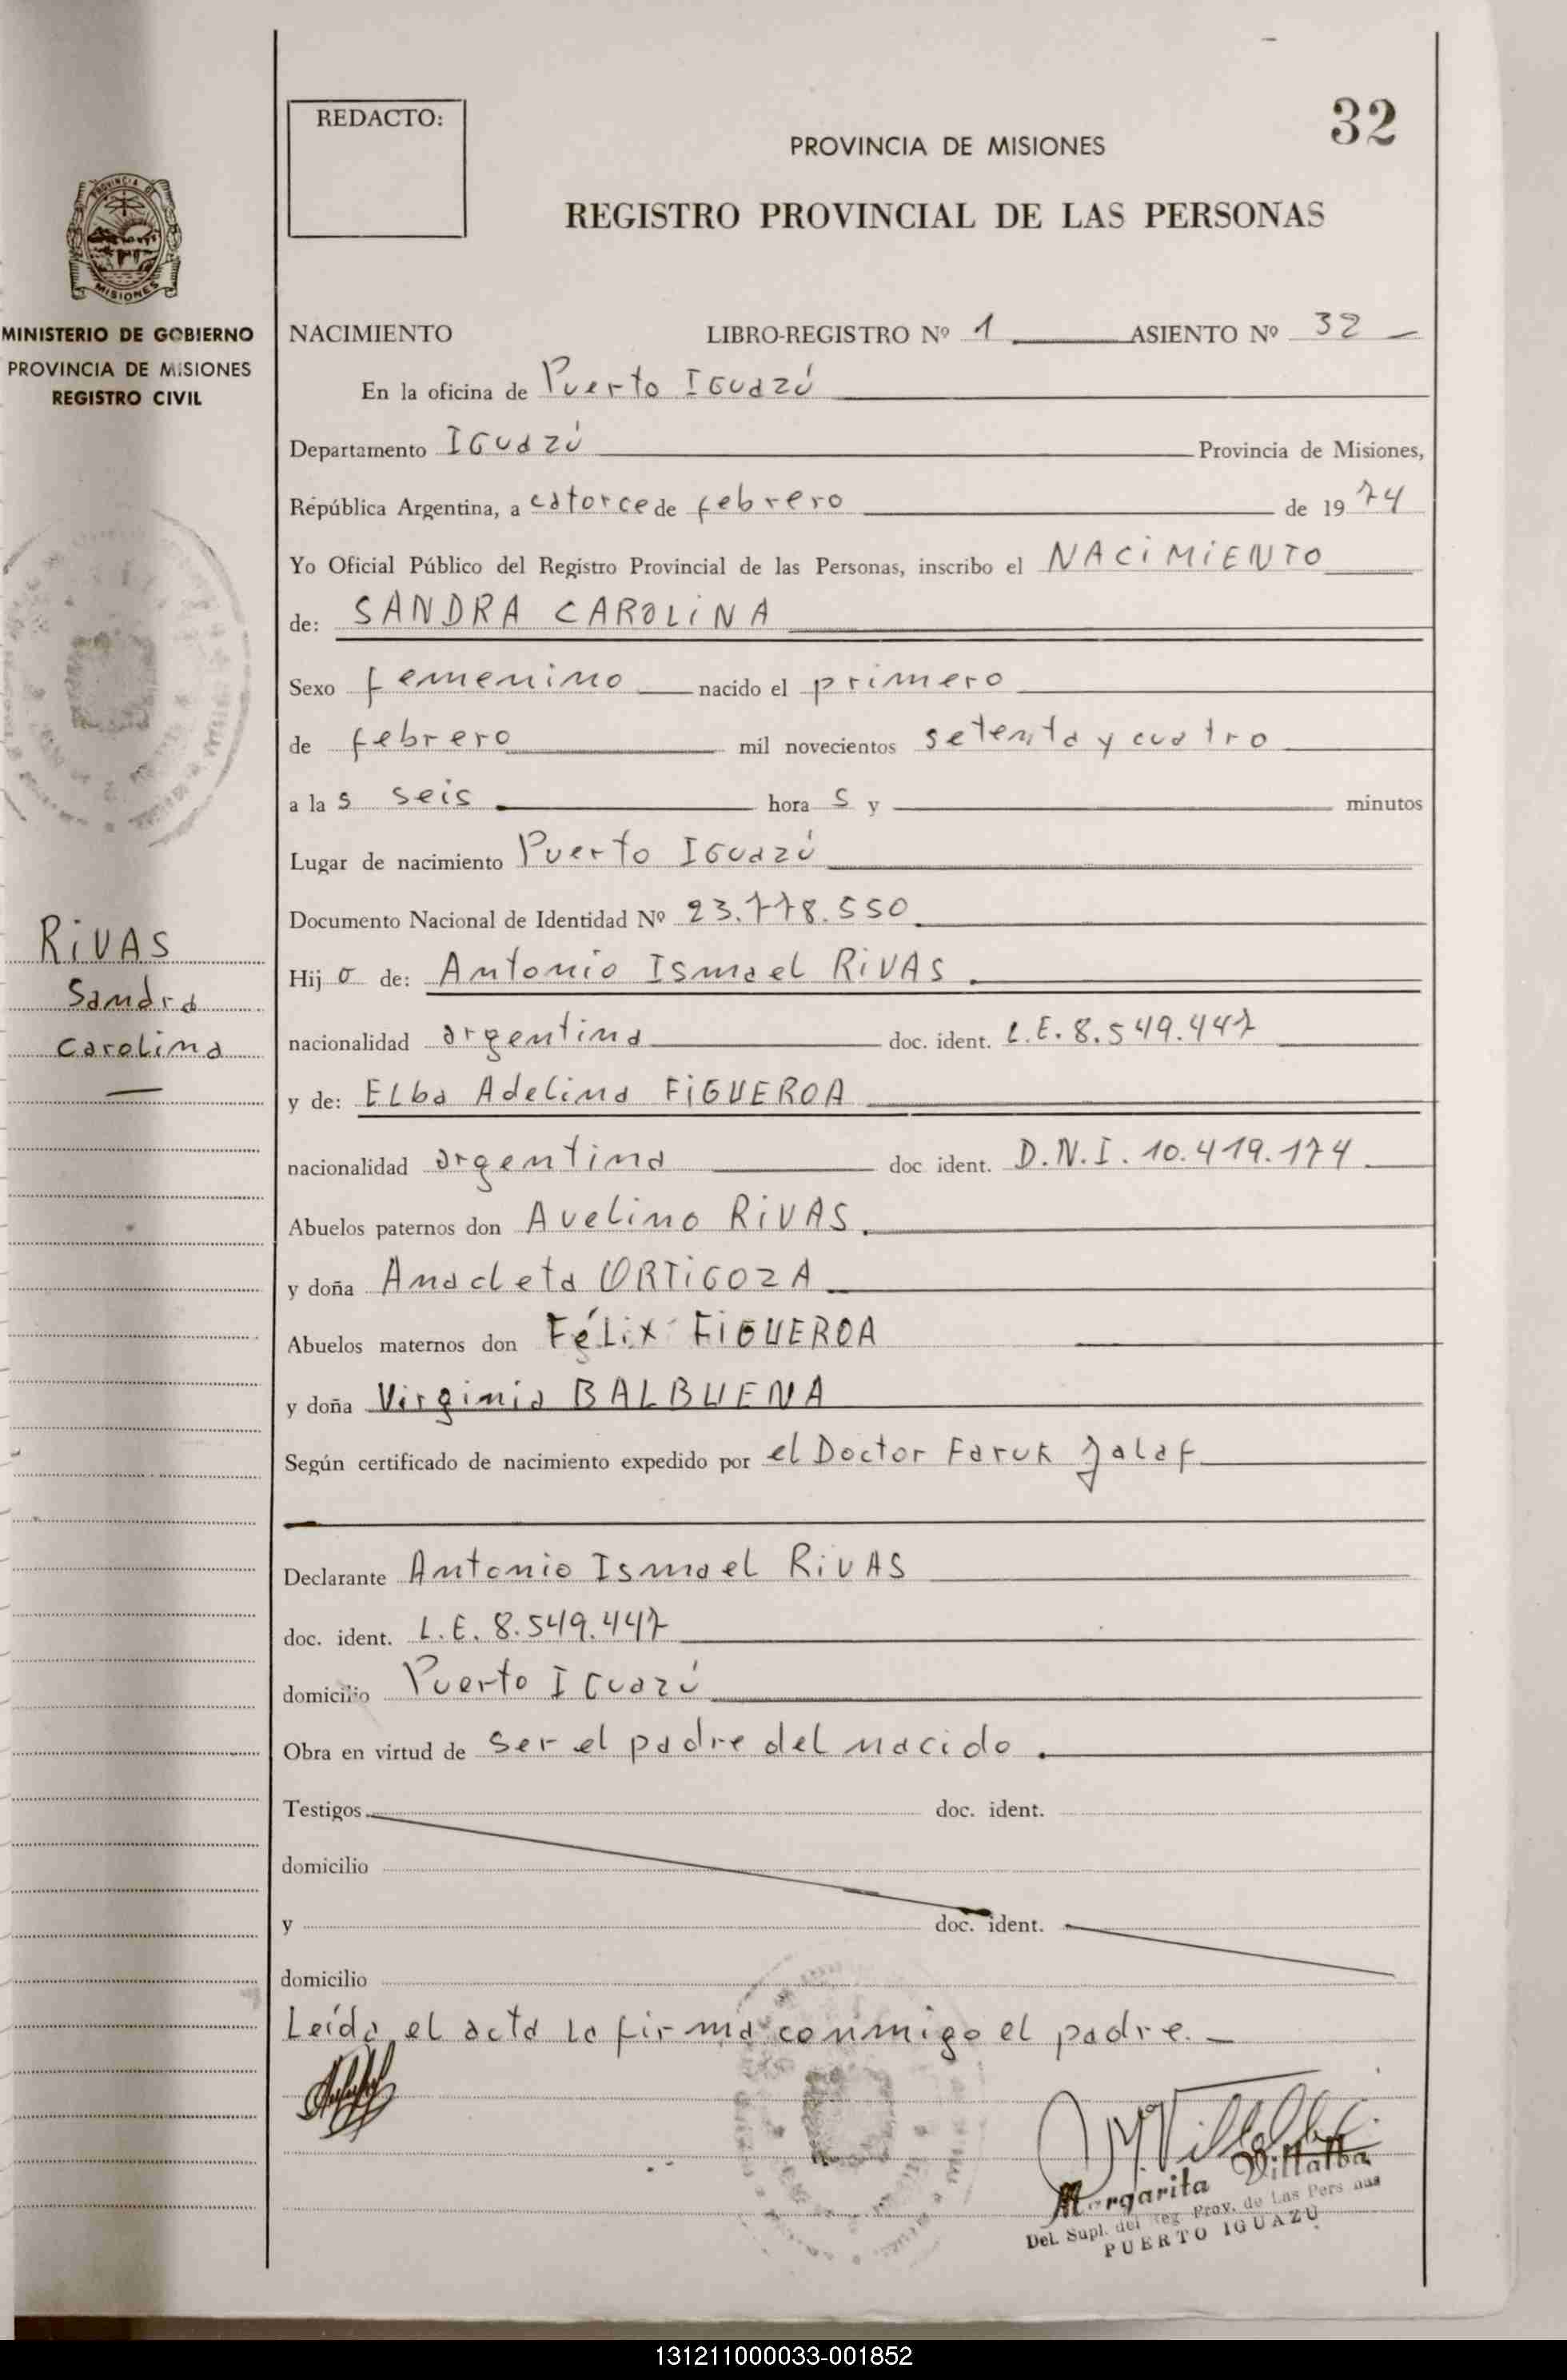 32
REDACTO:
PROVINCIA DE MISIONES
REGISTRO PROVINCIAL DE LAS PERSONAS
PROVINCIA DE
MISIONES
MINISTERIO DE GOBIERNO
PROVINCIA DE MISIONES
REGISTRO CIVIL
RiVAS
Sandra
Carolina
NACIMIENTO LIBRO-REGISTRO Nº 1 ASIENTO Nº 32
En la oficina de Puerto IGuazú
Departamento IGuazú Provincia de Misiones,
República Argentina, a catorce de febrero de 1974
Yo Oficial Público del Registro Provincial de las Personas, inscribo el NACiMiENTO
de: SANDRA CAROLiNA
Sexo femenino nacido el primero
de febrero mil novecientos setenta y cuatro
a la s seis hora s y minutos
Lugar de nacimiento Puerto IGuazú
Documento Nacional de Identidad Nº 23.778.550
Hij o de: Antonio Ismael RiVAS
nacionalidad argentina doc. ident. L.E. 8.549.447
y de: Elba Adelina FiGUEROA
nacionalidad argentina doc ident. D.N.I. 10.419.174
Abuelos paternos don Avelino RiVAS
y doña Anacleta ORTiGOZA
Abuelos maternos don Félix FiGUEROA
y doña Virginia BALBUENA
Según certificado de nacimiento expedido por el Doctor Faruk Jalaf
Declarante Antonio Ismael RiVAS
doc. ident. L.E. 8.549.447
domicilio Puerto IGuazú
Obra en virtud de ser el padre del nacido.
Testigos doc. ident.
domicilio
y doc. ident.
domicilio
Leída el acta la firma conmigo el padre.
Margarita Villalba
Del. Supl. del Reg. Prov. de Las Personas
PUERTO IGUAZU
131211000033-001852